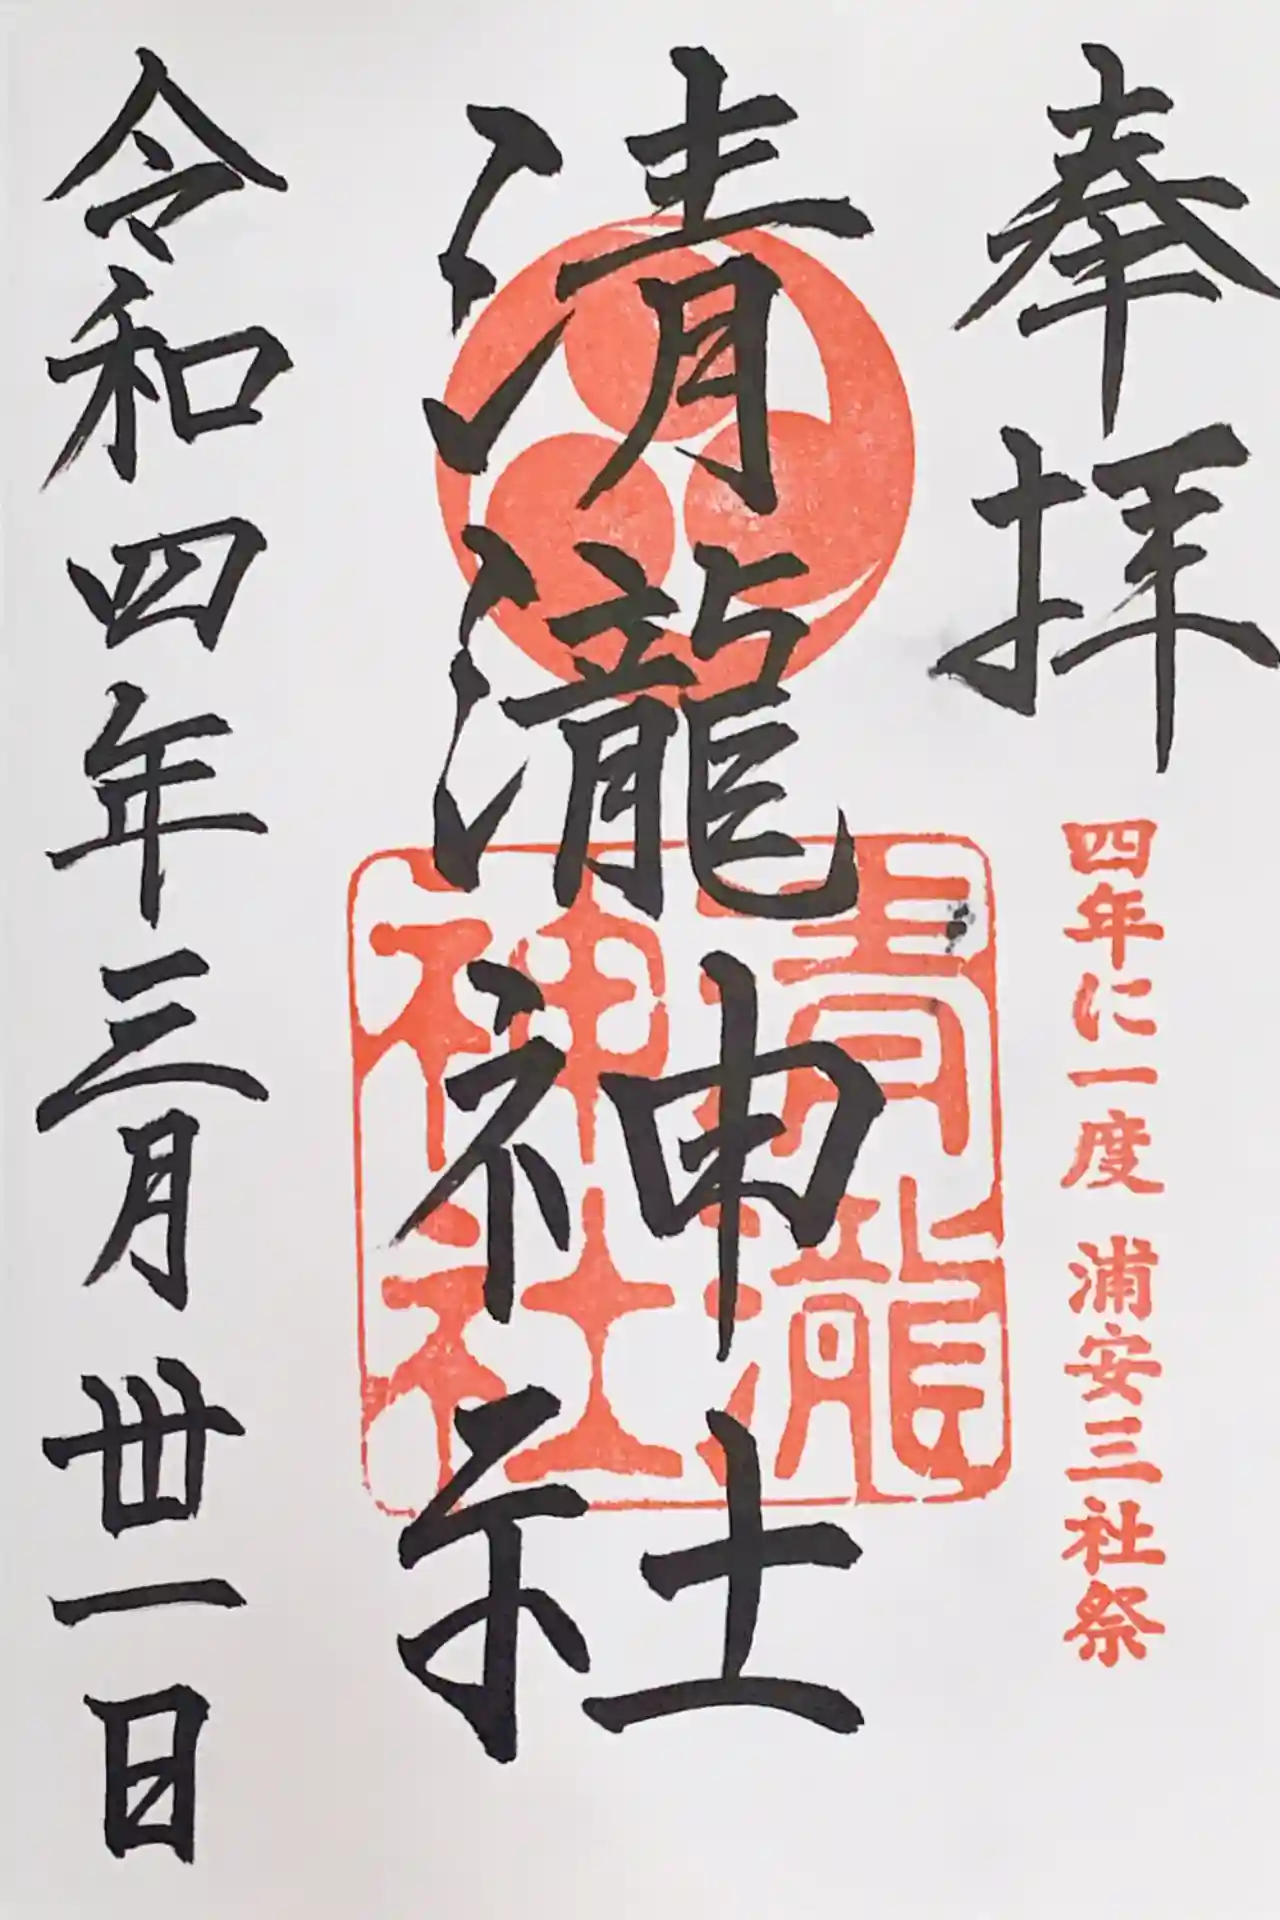 奉拝
四年に一度 浦安三社祭
清瀧神社
清瀧神社
令和四年三月卅一日